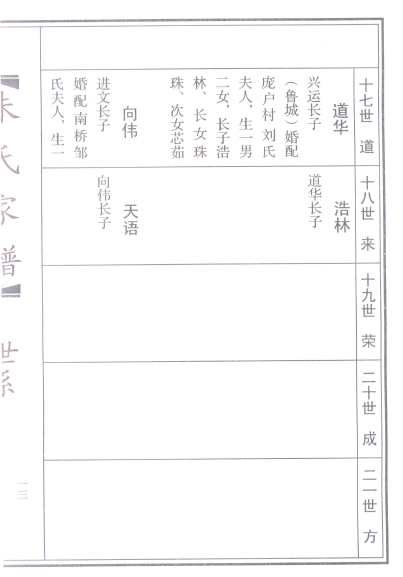 十七世 道
道华
兴运长子
（鲁城）婚配
庞户村刘氏
夫人，生一男
二女，长子浩
林、长女珠
珠、次女芯茹
向伟
进文长子
婚配南桥邹
氏夫人，生一
十八世 来
浩林
道华长子
天语
向伟长子
十九世 荣
二十世 成
二一世 方
朱氏家谱
世系
一三